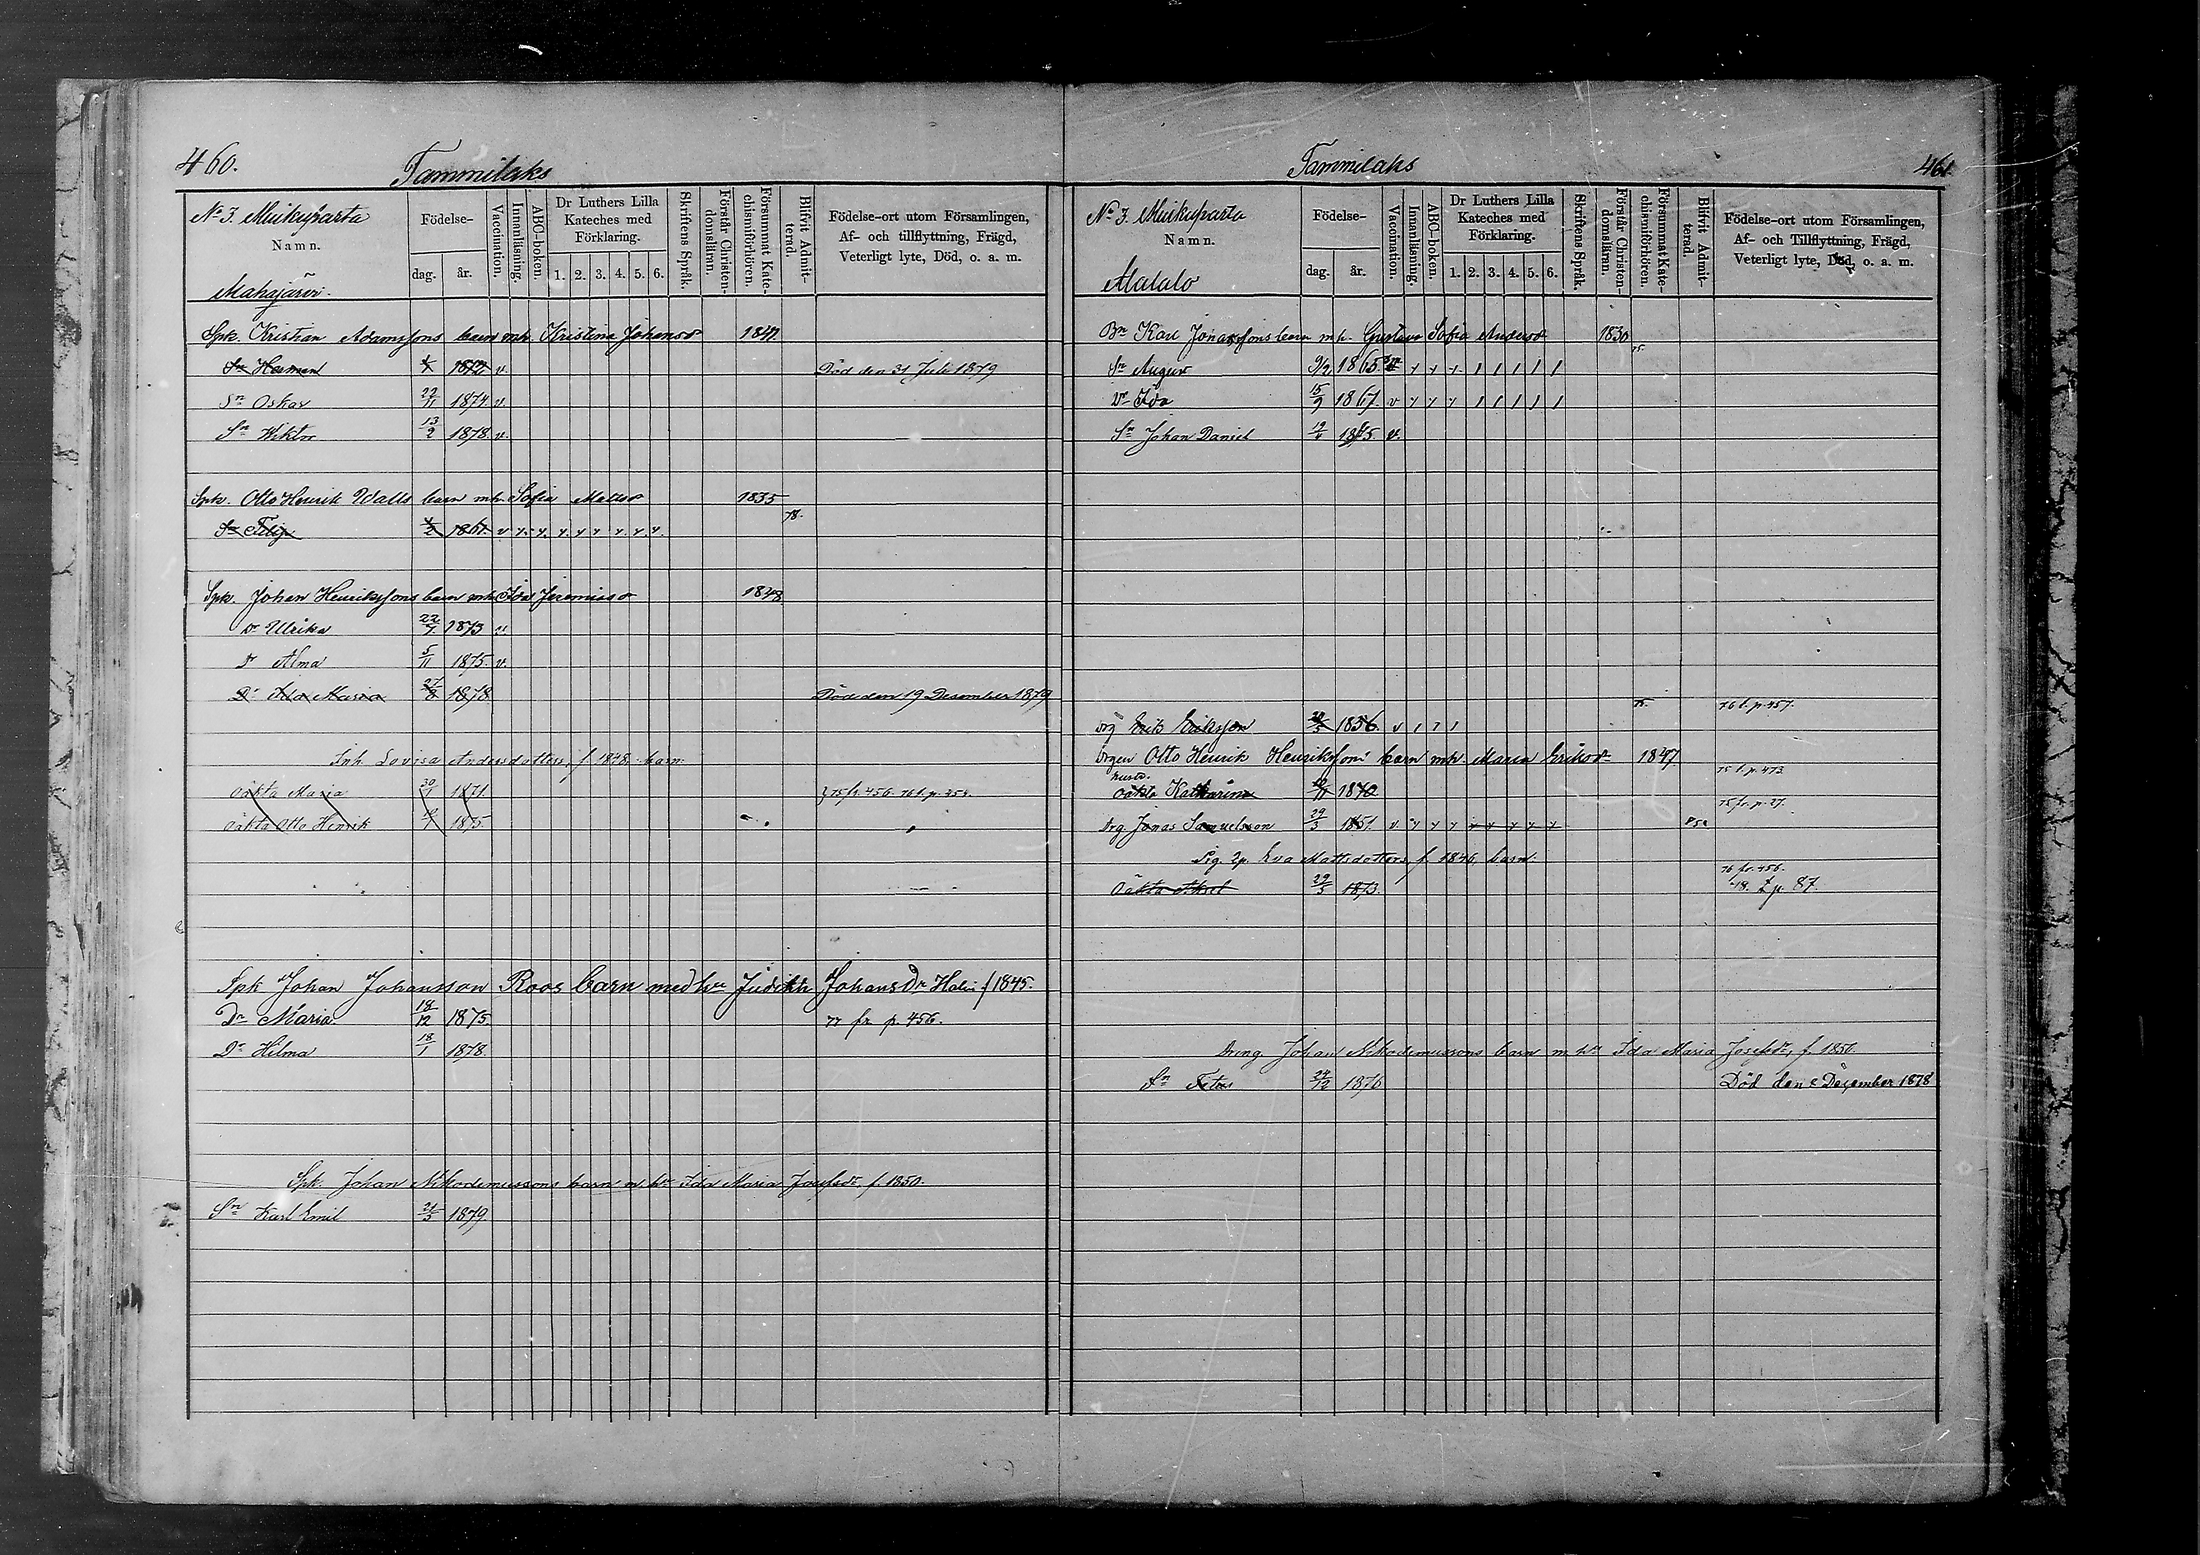 460.
Tammilaks
No 3. Muikuparta
Namn.
Mahajärvi.
Födelse-
dag. år.
Vaccination.
Innanläsning.
ABC-boken.
Dr Luthers Lilla Kateches med Förklaring.
1. 2. 3. 4. 5. 6.
Skriftens Språk.
Förstår Christendomsläran.
Försummat Katechismiförhören.
Blifvit Admitterad.
Födelse-ort utom Församlingen,
Af- och tillflyttning, Frägd,
Veterligt lyte, Död, o. a. m.
Spk. Kristian Adamssons barn mh. Kristina Johansd 1841.
Sn Herman 1872 v. Död den 31 Juli 1879
Sn Oskar 22/11 1874. v.
Sn Wiktor 13/2 1878. v.
Spk. Otto Henrik Walls barn mh. Sofia Mattsd 1835
78.
Sn Filip 1861. v
Spk. Johan Henrikssons barn mh. Ida Jeremiasd 1848
Dr Ulrika 22/7. 1873 v.
Dr Alma 5/11 1875. v.
Dr Ida Maria 27/8 1878 Död den 19 December 1879
Inh. Lovisa Andersdotters, f. 1848. barn:
Oäkta Maria 30/1 1871 75 fr. 456. 76 t. p. 354.
Oäkta Otto Henrik 1875.
Spk Johan Johansson Roos barn med hu Judith Johans Dr Halin f 1845.
Dr Maria. 18/12 1875. 77 fr. p. 456.
Dr Hilma 18/1 1878.
Spk. Johan Nikodemussons barn m. hu Ida Maria Josefsdr f. 1850.
Sn Karl Emil 21/3 1879.
Tammilaks
461
No 3. Muikuparta
Namn.
Födelse-
dag. år.
Vaccination.
Innanläsning.
ABC-boken.
Dr Luthers Lilla Kateches med Förklaring.
1. 2. 3. 4. 5. 6.
Skriftens Språk.
Förstår Christendomsläran.
Försummat Katechismiförhören.
Blifvit Admitterad.
Födelse-ort utom Församlingen,
Af- och Tillflyttning, Frägd,
Veterligt lyte, Död, o. a. m.
Bn Karl Jonassons barn mh. Gustava Sofia Andersd 1830
75.
Sn August 9/2 1865
Dr Ida 15/9 1861. v
Sn Johan Daniel 1875. v.
75. 76 t. p. 457.
Drg Erik Eriksson 1856. v
Drgen Otto Henrik Henrikssons barn mh. Maria Eriksdr 1847
75 t. p. 473.
Oäkta Katharina 1870
75 fr. p. 27.
Drg Jonas Samuelsson 29/3 1851. v
Pig. 2p. Eva Mattsdotters, f. 1846, barn:
76 fr. 456.
Oäkta Aksel 29/3 1873. 78. t p. 87.
Dreng Johan Nikodemussons barn m. hu Ida Maria Josefsdr, f. 1850.
Sn Petus 24/12 1876 Död den 2 December 1878